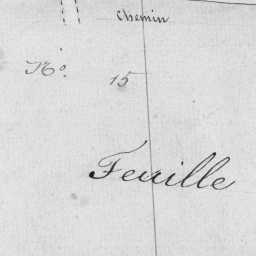 Chemin
No. 15
Feuille